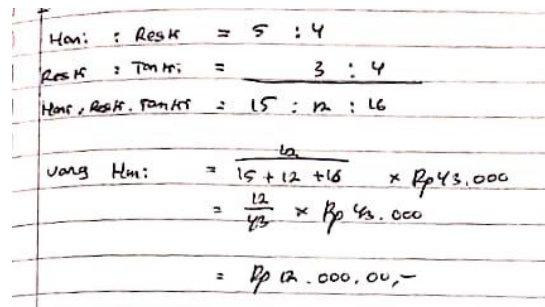 Hani : Reski = 5 : 4
Reski : Tanti = 3 : 4
Hani, Reski, Tanti = 15 : 12 : 16
Uang Hani = 12 / 15 + 12 + 16 × Rp 43.000
= 12/43 × Rp 43.000
= Rp 12.000,00,-